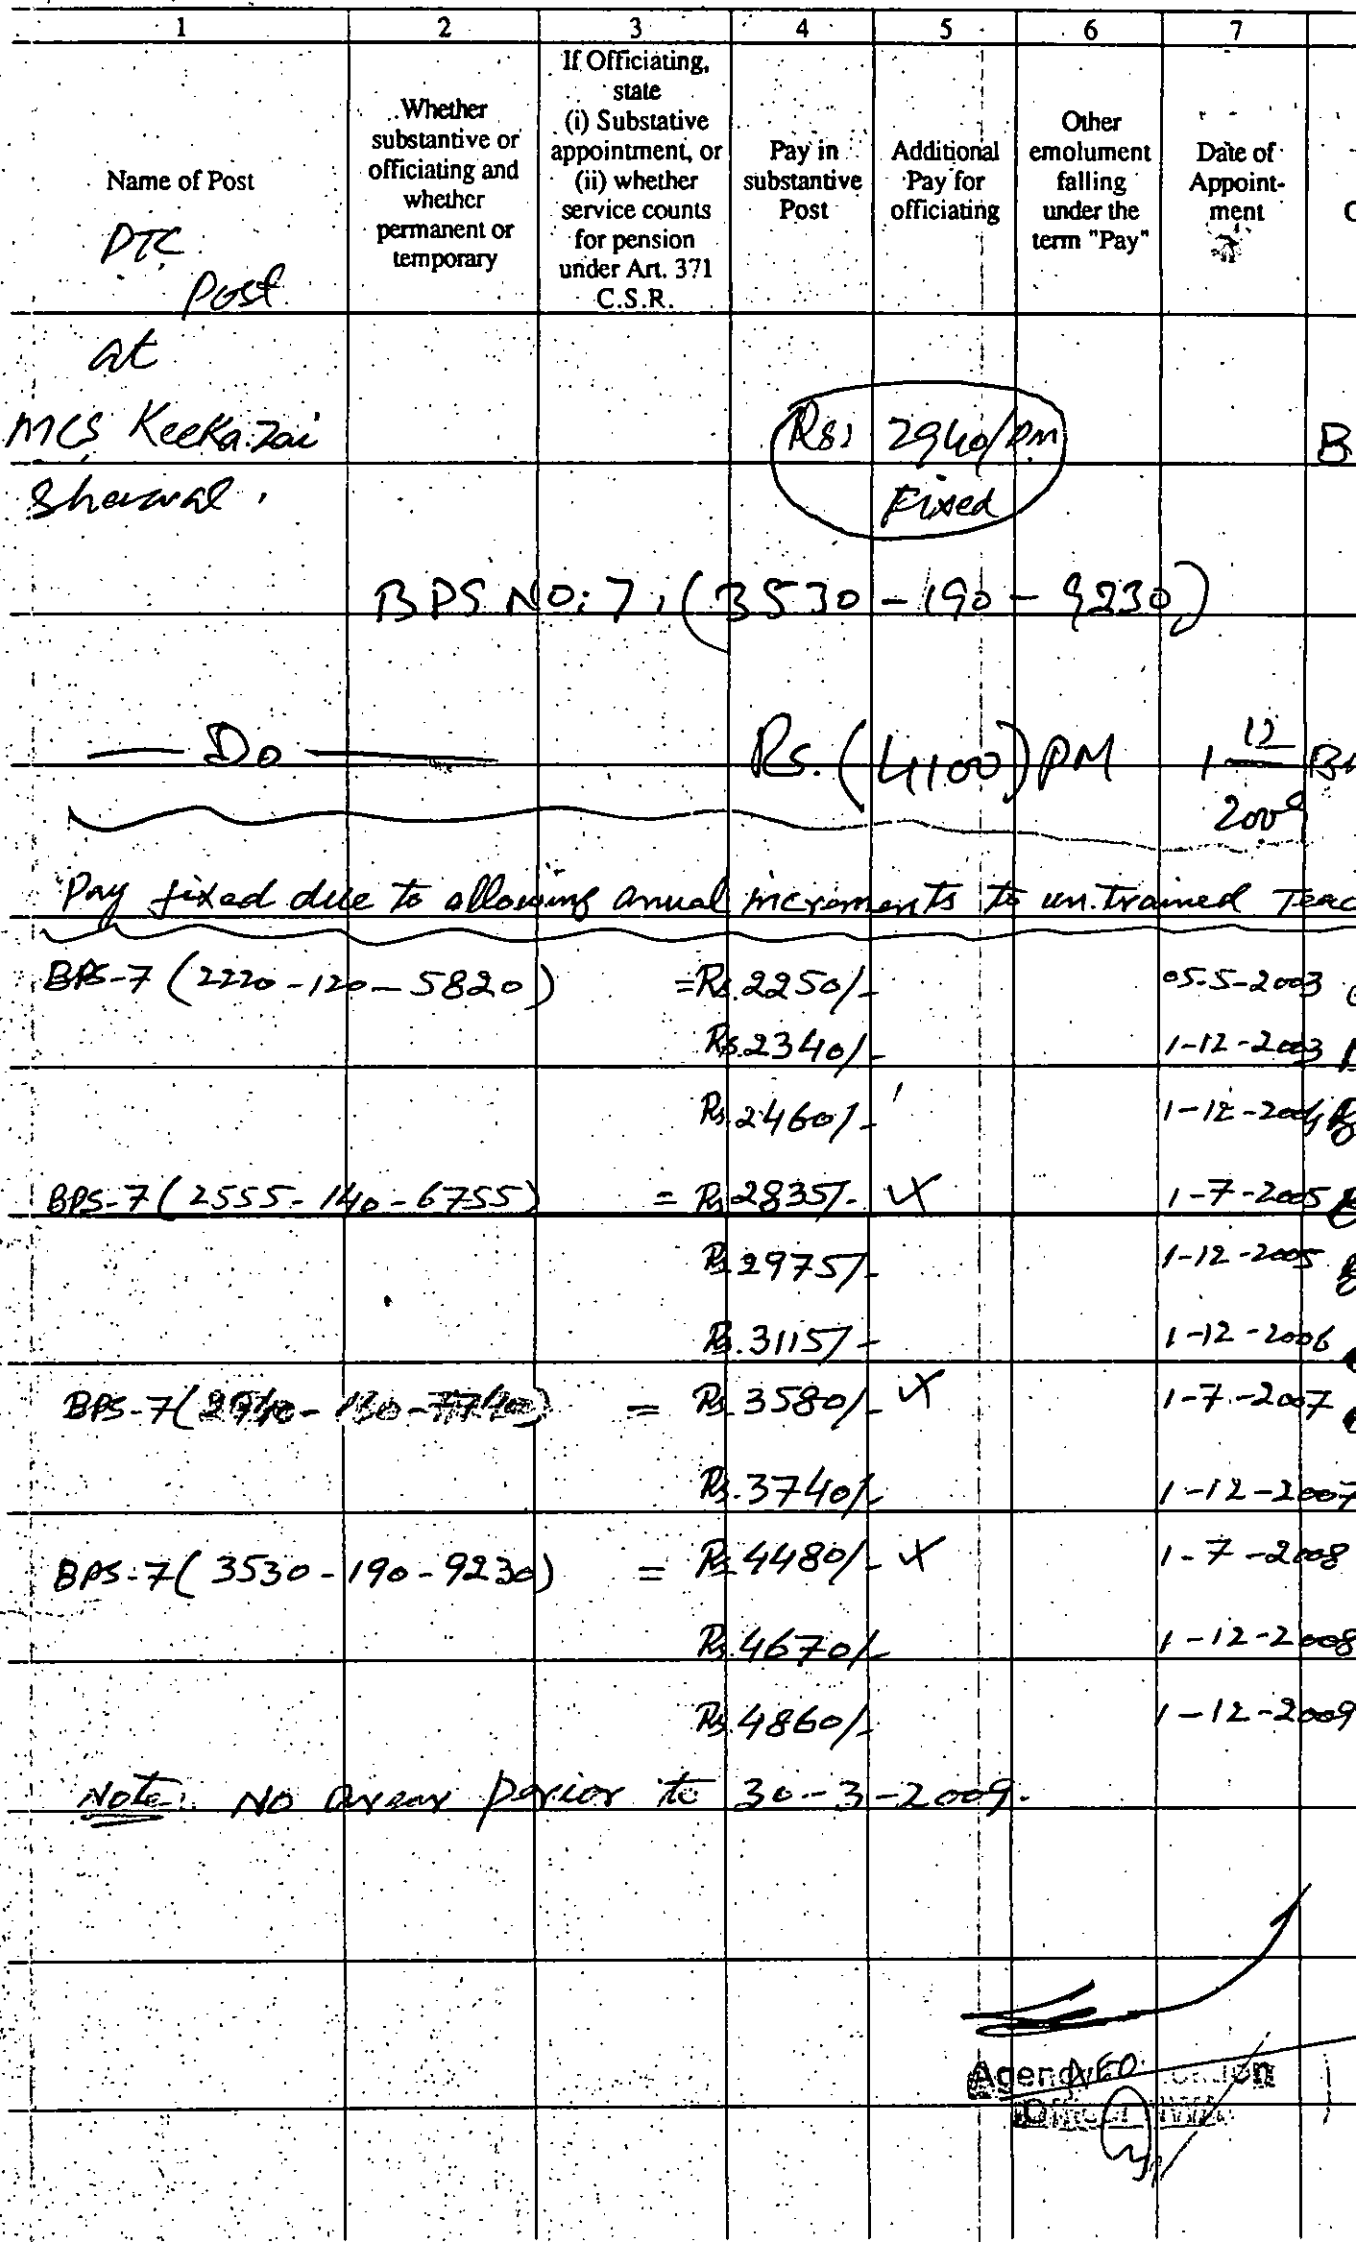 1 2 3 4 5 6 7
Name of Post
Whether substantive or officiating and whether permanent or temporary
If Officiating, state (i) Substative appointment, or (ii) whether service counts for pension under Art. 371 C.S.R.
Pay in substantive Post
Additional Pay for officiating
Other emolument falling under the term "Pay"
Date of Appoint-ment
PTC
Post
at
MCS Keeka Zai
Shawal.
Rs: 2940/PM
Fixed
B
BPS NO: 7, (3530 - 190 - 9230)
— Do — Rs. (4100) PM 1 12
2009
Pay fixed due to allowing annual increments to un.trained Teac
BPS-7 (2220 - 120 - 5820) = Rs. 2250/- 05-5-2003
Rs. 2340/- 1-12-2003
Rs. 2460/- 1-12-2004
BPS-7 (2555 - 140 - 6755) = Rs. 2835/- 1-7-2005
Rs. 2975/- 1-12-2005
Rs. 3115/- 1-12-2006
BPS-7 = Rs. 3580/- 1-7-2007
Rs. 3740/- 1-12-2007
BPS-7 (3530 - 190 - 9230) = Rs. 4480/- 1-7-2008
Rs. 4670/- 1-12-2008
Rs. 4860/- 1-12-2009
Note: No arear perior to 30-3-2009.
Agency
Officer